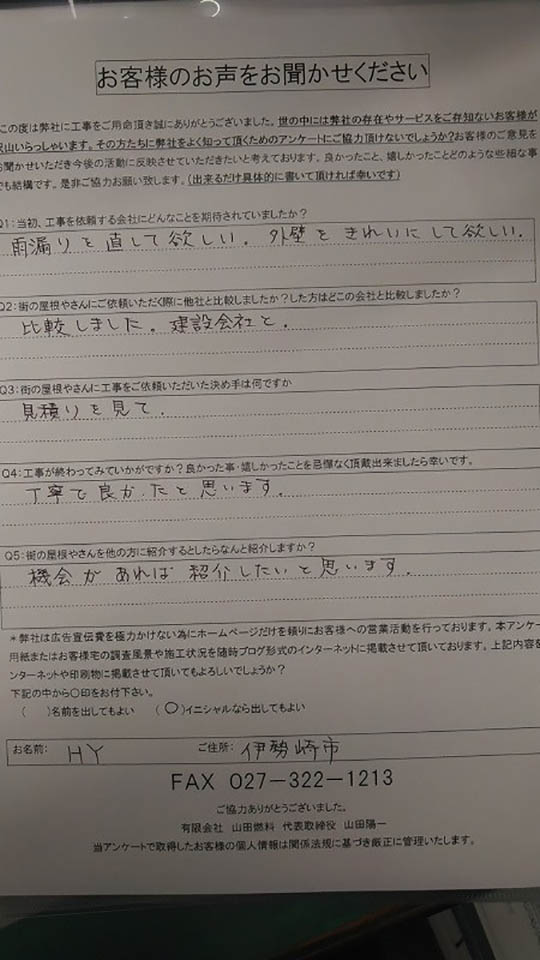 お客様のお声をお聞かせください
この度は弊社に工事をご用命頂き誠にありがとうございました。世の中には弊社の存在やサービスをご存知ないお客様が
沢山いらっしゃいます。その方たちに弊社をよく知って頂くためのアンケートにご協力頂けないでしょうか?お客様のご意見を
お聞かせいただき今後の活動に反映させていただきたいと考えております。良かったこと、嬉しかったことどのような些細な事
でも結構です。是非ご協力お願い致します。(出来るだけ具体的に書いて頂ければ幸いです)
Q1:当初、工事を依頼する会社にどんなことを期待されていましたか?
雨漏りを直して欲しい。外壁をきれいにして欲しい。
Q2:街の屋根やさんにご依頼いただく際に他社と比較しましたか?した方はどこの会社と比較しましたか?
比較しました。建設会社と。
Q3:街の屋根やさんに工事をご依頼いただいた決め手は何ですか
見積りを見て。
Q4:工事が終わってみていかがですか?良かった事・嬉しかったことを忌憚なく頂戴出来ましたら幸いです。
丁寧で良かったと思います。
Q5:街の屋根やさんを他の方に紹介するとしたらなんと紹介しますか?
機会があれば紹介したいと思います。
*弊社は広告宣伝費を極力かけない為にホームページだけを頼りにお客様への営業活動を行っております。本アンケ
用紙またはお客様宅の調査風景や施工状況を随時ブログ形式のインターネットに掲載させて頂いております。上記内容を
ンターネットや印刷物に掲載させて頂いてもよろしいでしょうか?
下記の中から〇印をお付下さい。
( )名前を出してもよい (〇)イニシャルなら出してもよい
お名前: HY ご住所: 伊勢崎市
FAX 027-322-1213
ご協力ありがとうございました。
有限会社 山田燃料 代表取締役 山田陽一
当アンケートで取得したお客様の個人情報は関係法規に基づき厳正に管理いたします。